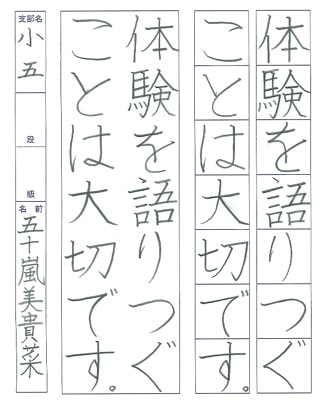 体験を語りつぐ
ことは大切です。
体験を語りつぐ
ことは大切です。
支部名
小五
段
級
名前
五十嵐美貴菜